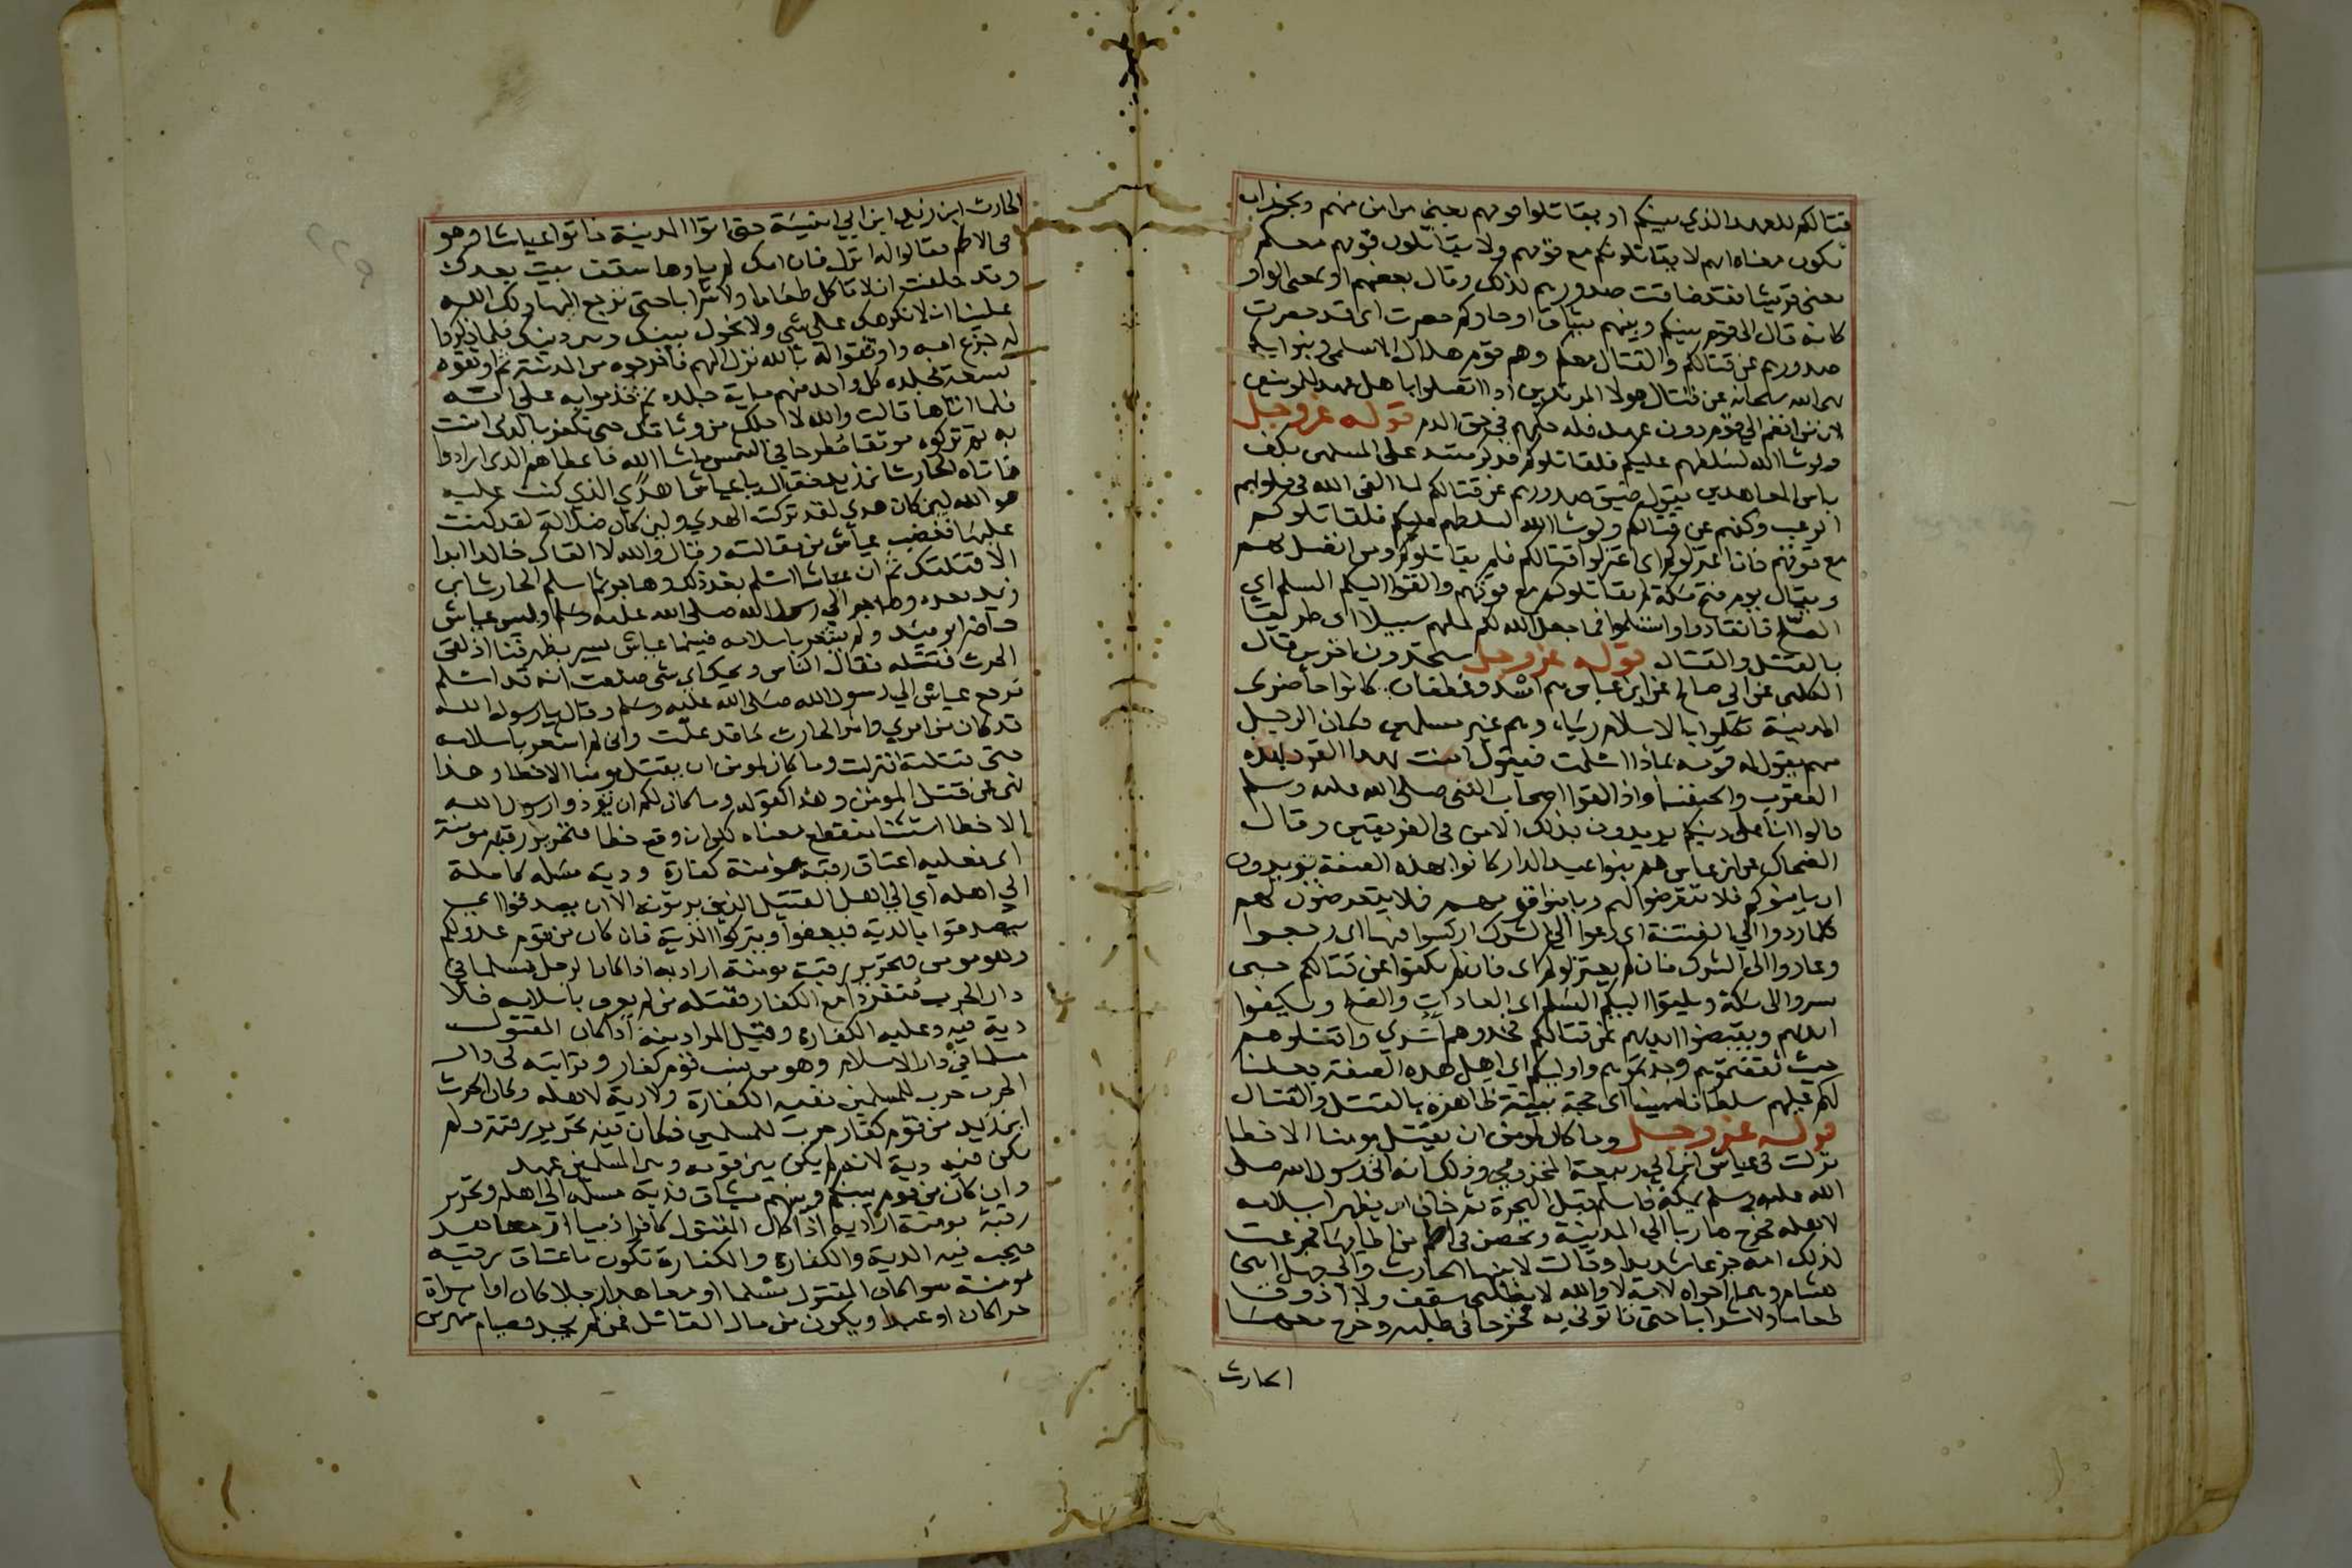 قتالكم للعهد الذي بينكم او يقاتلوا قومهم يعني من امن منهم ويجوز ان
تكون معناه انهم لا يقاتلونكم مع قومهم ولا يقاتلون قومهم معكم
يعنى قريشا فقد ضاقت صدورهم لذلك وقال بعضهم او بمعنى الواو
كانه قال الى قوم بينكم وبينهم ميثاق او جاوكم حصرت اى قد حصرت
صدورهم عن قتالكم والقتال معكم وهم قوم هلال الاسلمى وبنوا
نهى الله سبحانه عن قتال هولا المرتدين اذا اتصلوا باهل عهد للمومنين
لان من انضم الى قوم دون عهد فله حكمهم في حق الدم قوله عز وجل
ولو شا الله لسلطهم عليكم فلقاتلوكم فذكر منته على المسلمين بكف
باس المعاهدين يقول ضيق صدورهم عن قتالكم لما القى الله فى قلوبهم
الرعب وكفهم عن قتالكم ولو شا الله لسلطهم عليكم فلقاتلوكم
مع قومهم فان اعتزلوكم اى اعتزلوا قتالكم فلم يقاتلوكم ومن اتصل بهم
ويقال يوم فتح مكة لم يقاتلوكم مع قومهم والقوا اليكم السلم اي
الصلح فانقادوا واستسلموا فما جعل الله لكم عليهم سبيلا اى طريقا
بالقتل والقتال قوله عز وجل ستجدون اخرين قال
الكلبى عن ابي صالح عن ابن عباس هم اسد وغطفان كانوا حاضرى
المدينة تكلموا بالاسلام رياء وهم غير مسلمين وكان الرجل
منهم يقول له قومه بماذا اسلمت فيقول امنت بهذا القرد بهذه
العقرب والخنفسا واذا لقوا اصحاب النبى صلى الله عليه وسلم
قالوا انا على دينكم يريدون بذلك الامن فى الفريقين وقال
الضحاك عن ابن عباس هم بنوا عبد الدار كانوا بهذه الصفة يريدون
ان يامنوكم فلا تتعرضوا لهم ويامنوا قومهم فلا يتعرضون لهم
كلما ردوا الى الفتنة اى دعوا الى الشرك اركسوا فيها اى رجعوا
وعادوا الى الشرك فان لم يعتزلوكم اى فان لم يكفوا عن قتالكم حتى
يسروا الى مكة ويلقوا اليكم السلم اى المعاداة والصلح ويكفوا
ايديهم ويقبضوا ايديهم عن قتالكم فخذوهم اسرى واقتلوهم
حيث ثقفتموهم وجدتموهم واوليكم اى اهل هذه الصفة جعلنا
لكم عليهم سلطانا مبينا اى حجة بينة ظاهرة بالقتل والقتال
قوله عز وجل وما كان لمومن ان يقتل مومنا الا خطا
نزلت فى عياش ابن ابي ربيعة المخزومي وذلك انه اتى رسول الله صلى
الله عليه وسلم بمكة فاسلم قبل الهجرة ثم خاف ان يظهر اسلامه
لاهله فخرج هاربا الي المدينة وتحصن فى اطم من اطامها فجزعت
لذلك امه جزعا شديدا وقالت لابنيها الحارث وابى جهل ابنى
هشام وهما اخواه لامه لا والله لا يظلنى سقف ولا اذوق
طعاما ولا شرابا حتى تاتونى به فخرجا فى طلبه وخرج معهما
الحارث
الحارث ابن زيد ابن ابي انيسة حتى اتوا المدينة فاتوا عياشا وهو
فى الاطم فقالوا له انزل فان امك لم ياوها سقف بيت بعدك
وقد حلفت ان لا تاكل طعاما ولا شرابا حتى ترجع اليها ولك الله
علينا ان لا نكرهك على شى ولا نحول بينك وبين دينك فلما ذكروا
له جزع امه واوثقوا له بالله نزل اليهم فاخرجوه من المدينة ثم اوثقوه
بنسعة فجلده كل واحد منهم ماية جلده ثم قدموا به على امه
فلما اتاها قالت والله لا احلك من وثاقك حتى تكفر بالذى امنت
به ثم تركوه موثقا مطروحا فى الشمس ما شا الله فاعطاهم الذى ارادوا
فاتاه الحارث ابن زيد فقال يا عياش اهذا الذي كنت عليه
فو الله لين كان هدى لقد تركت الهدي ولين كان ضلالة لقد كنت
عليها فغضب عياش من مقالته وقال والله لا القاك خاليا ابدا
الا قتلتك ثم ان عياشا اسلم بعد ذلك وهاجر ثم اسلم الحارث ابن
زيد بعده وهاجر الي رسول الله صلى الله عليه وسلم وليس عياش
حاضرا يوميذ ولم يشعر باسلامه فبينما عياش يسير بظهر قبا اذ لقى
الحرث فقتله فقال الناس ويحك اي شى صنعت انه قد اسلم
فرجع عياش الي رسول الله صلى الله عليه وسلم وقال يا رسول الله
قد كان من امري وامر الحارث ما قد علمت وانى لم اشعر باسلامه
حتى قتلته فنزلت وما كان لمومن ان يقتل مومنا الا خطا وهذا
نهى عن قتل المومن وهذا كقوله وما كان لكم ان توذوا رسول الله
الا خطا استثنا منقطع معناه لكن ان وقع خطا فتحرير رقبة مومنة
اى فعليه اعتاق رقبة مومنة كفارة ودية مسلمة كاملة
الي اهله اي الي اهل القتيل الذين يرثونه الا ان يصدقوا اى
يتصدقوا بالدية فيعفوا ويتركوا الدية فان كان من قوم عدو لكم
وهو مومن فتحرير رقبة مومنة اراد به اذا كان الرجل مسلما فى
دار الحرب منفردا مع الكفار فقتله من لم يعرف باسلامه فلا
دية فيه وعليه الكفارة وقيل المراد منه اذا كان المقتول
مسلما فى دار الاسلام وهو من نسب قوم كفار وقرابته فى دار
الحرب حرب للمسلمين ففيه الكفارة ولا دية لاهله وكان الحرث
ابن زيد من قوم كفار حرب للمسلمين فكان فيه تحرير رقبة ولم
يكن فيه دية لانه لم يكن بين قومه وبين المسلمين عهد
وان كان من قوم بينكم وبينهم ميثاق فدية مسلمة الي اهله وتحرير
رقبة مومنة اراد به اذا كان المقتول كافرا ذميا او معاهد
فيجب فيه الدية والكفارة والكفارة تكون باعتاق رقبة
مومنة سوا كان المقتول مسلما او معاهدا رجلا كان او امراة
حرا كان او عبدا ويكون من مال القاتل فمن لم يجد فصيام شهرين